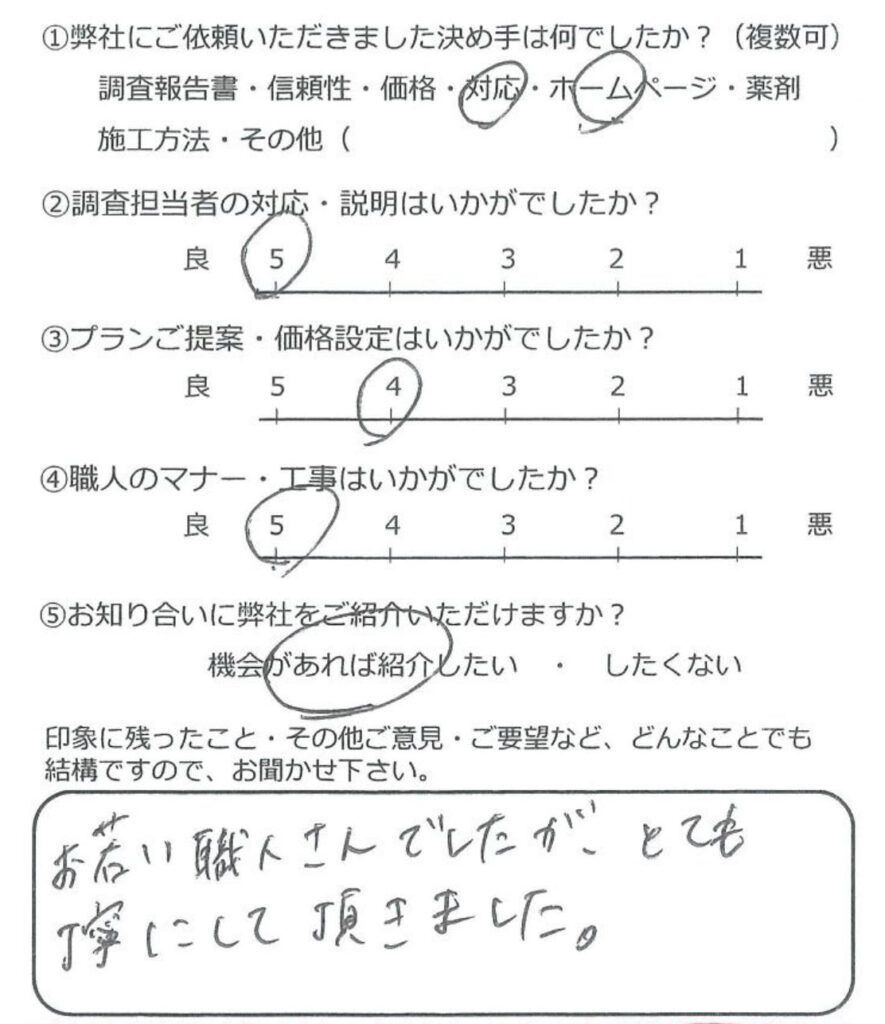 ①弊社にご依頼いただきました決め手は何でしたか？（複数可）
調査報告書・信頼性・価格・対応・ホームページ・薬剤
施工方法・その他（　　　　　　　　　　　　　　　　　）
②調査担当者の対応・説明はいかがでしたか？
良 5 4 3 2 1 悪
③プランご提案・価格設定はいかがでしたか？
良 5 4 3 2 1 悪
④職人のマナー・工事はいかがでしたか？
良 5 4 3 2 1 悪
⑤お知り合いに弊社をご紹介いただけますか？
機会があれば紹介したい　・　したくない
印象に残ったこと・その他ご意見・ご要望など、どんなことでも
結構ですので、お聞かせ下さい。
お若い職人さんでしたが、とても
丁寧にして頂きました。